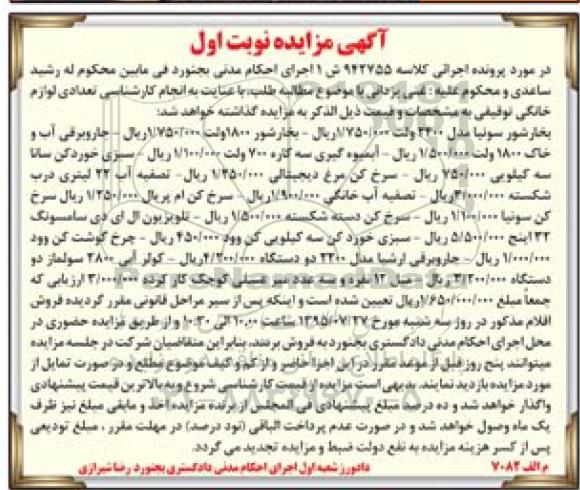 آگهی مزایده نوبت اول
در مورد پرونده اجرائی کلاسه ۹۴۲۷۵۵ ش ۱ اجرای احکام مدنی بجنورد فی مابین محکوم له رشید
ساعدی و محکوم علیه : غنی یزدانی با موضوع مطالبه طلب، با عنایت به انجام کارشناسی تعدادی لوازم
خانگی توقیفی به مشخصات و قیمت ذیل الذکر به مزایده گذاشته خواهد شد:
بخارشور سونیا مدل ۲۴۰۰ ولت ۱/۷۵۰/۰۰۰ریال - بخارشور ۱۸۰۰ولت ۱/۷۵۰/۰۰۰ریال - جاروبرقی آب و
خاک ۱۸۰۰ ولت ۱/۵۰۰/۰۰۰ ریال - آبمیوه گیری سه کاره ۷۰۰ ولت ۱/۱۰۰/۰۰۰ ریال - سبزی خوردکن سانا
سه کیلویی ۷۵۰/۰۰۰ ریال - سرخ کن مرغ دیجیتالی ۱/۲۵۰/۰۰۰ ریال- تصفیه آب ۲۲ لیتری درب
شکسته ۳/۰۰۰/۰۰۰ریال - تصفیه آب خانگی ۱/۹۰۰/۰۰۰ریال - سرخ کن ام پریال ۱/۲۵۰/۰۰۰ ریال سرخ
کن سونیا ۱/۱۰۰/۰۰۰ ریال - سرخ کن دسته شکسته ۱/۵۰۰/۰۰۰ ریال - تلویزیون ال ای دی سامسونگ
۳۲اینچ ۵/۵۰۰/۰۰۰ ریال - سبزی خورد کن سه کیلویی کن وود ۴۵۰/۰۰۰ ریال - چرخ گوشت کن وود
۱/۰۰۰/۰۰۰ ریال - جاروبرقی ارشیا مدل ۲۲۰۰ دو دستگاه ۴/۲۰۰/۰۰۰ریال - کولر آبی ۲۸۰۰ سولماز دو
دستگاه ۳/۲۰۰/۰۰۰ریال - مبل ۱۲ نفره و سه عدد میز عسلی کوچک کار کرده ۳/۰۰۰/۰۰۰ ارزیابی که
جمعاً مبلغ ریال تعیین شده است و اینکه پس از سیر مراحل قانونی مقرر گردیده فروش
اقلام مذکور در روز سه شنبه مورخ ۱۳۹۵/۰۷/۲۷ ساعت ۱۰,۰۰ الی ۱۰:۳۰ و از طریق مزایده حضوری در
محل اجرای احکام مدنی دادگستری بجنورد به فروش برسد. بنابراین متقاضیان شرکت در جلسه مزایده
میتوانند پنج روز قبل از موعد مقرر در این اجرا حاضر و از کم و کیف موضوع مطلع و در صورت تمایل از
مورد مزایده بازدید نمایند. بدیهی است مزایده از قیمت کارشناسی شروع و به بالاترین قیمت پیشنهادی
واگذار خواهد شد و ده درصد مبلغ پیشنهادی فی المجلس از برنده مزایده اخذ و مابقی مبلغ نیز ظرف
یک ماه وصول خواهد شد و در صورت عدم پرداخت الباقی (نود درصد) در مهلت مقرر ، مبلغ تودیعی
پس از کسر هزینه مزایده به نفع دولت ضبط و مزایده تجدید می گردد.
م الف ۷۰۸۲ دادورز شعبه اول اجرای احکام مدنی دادگستری بجنورد رضا شیرازی